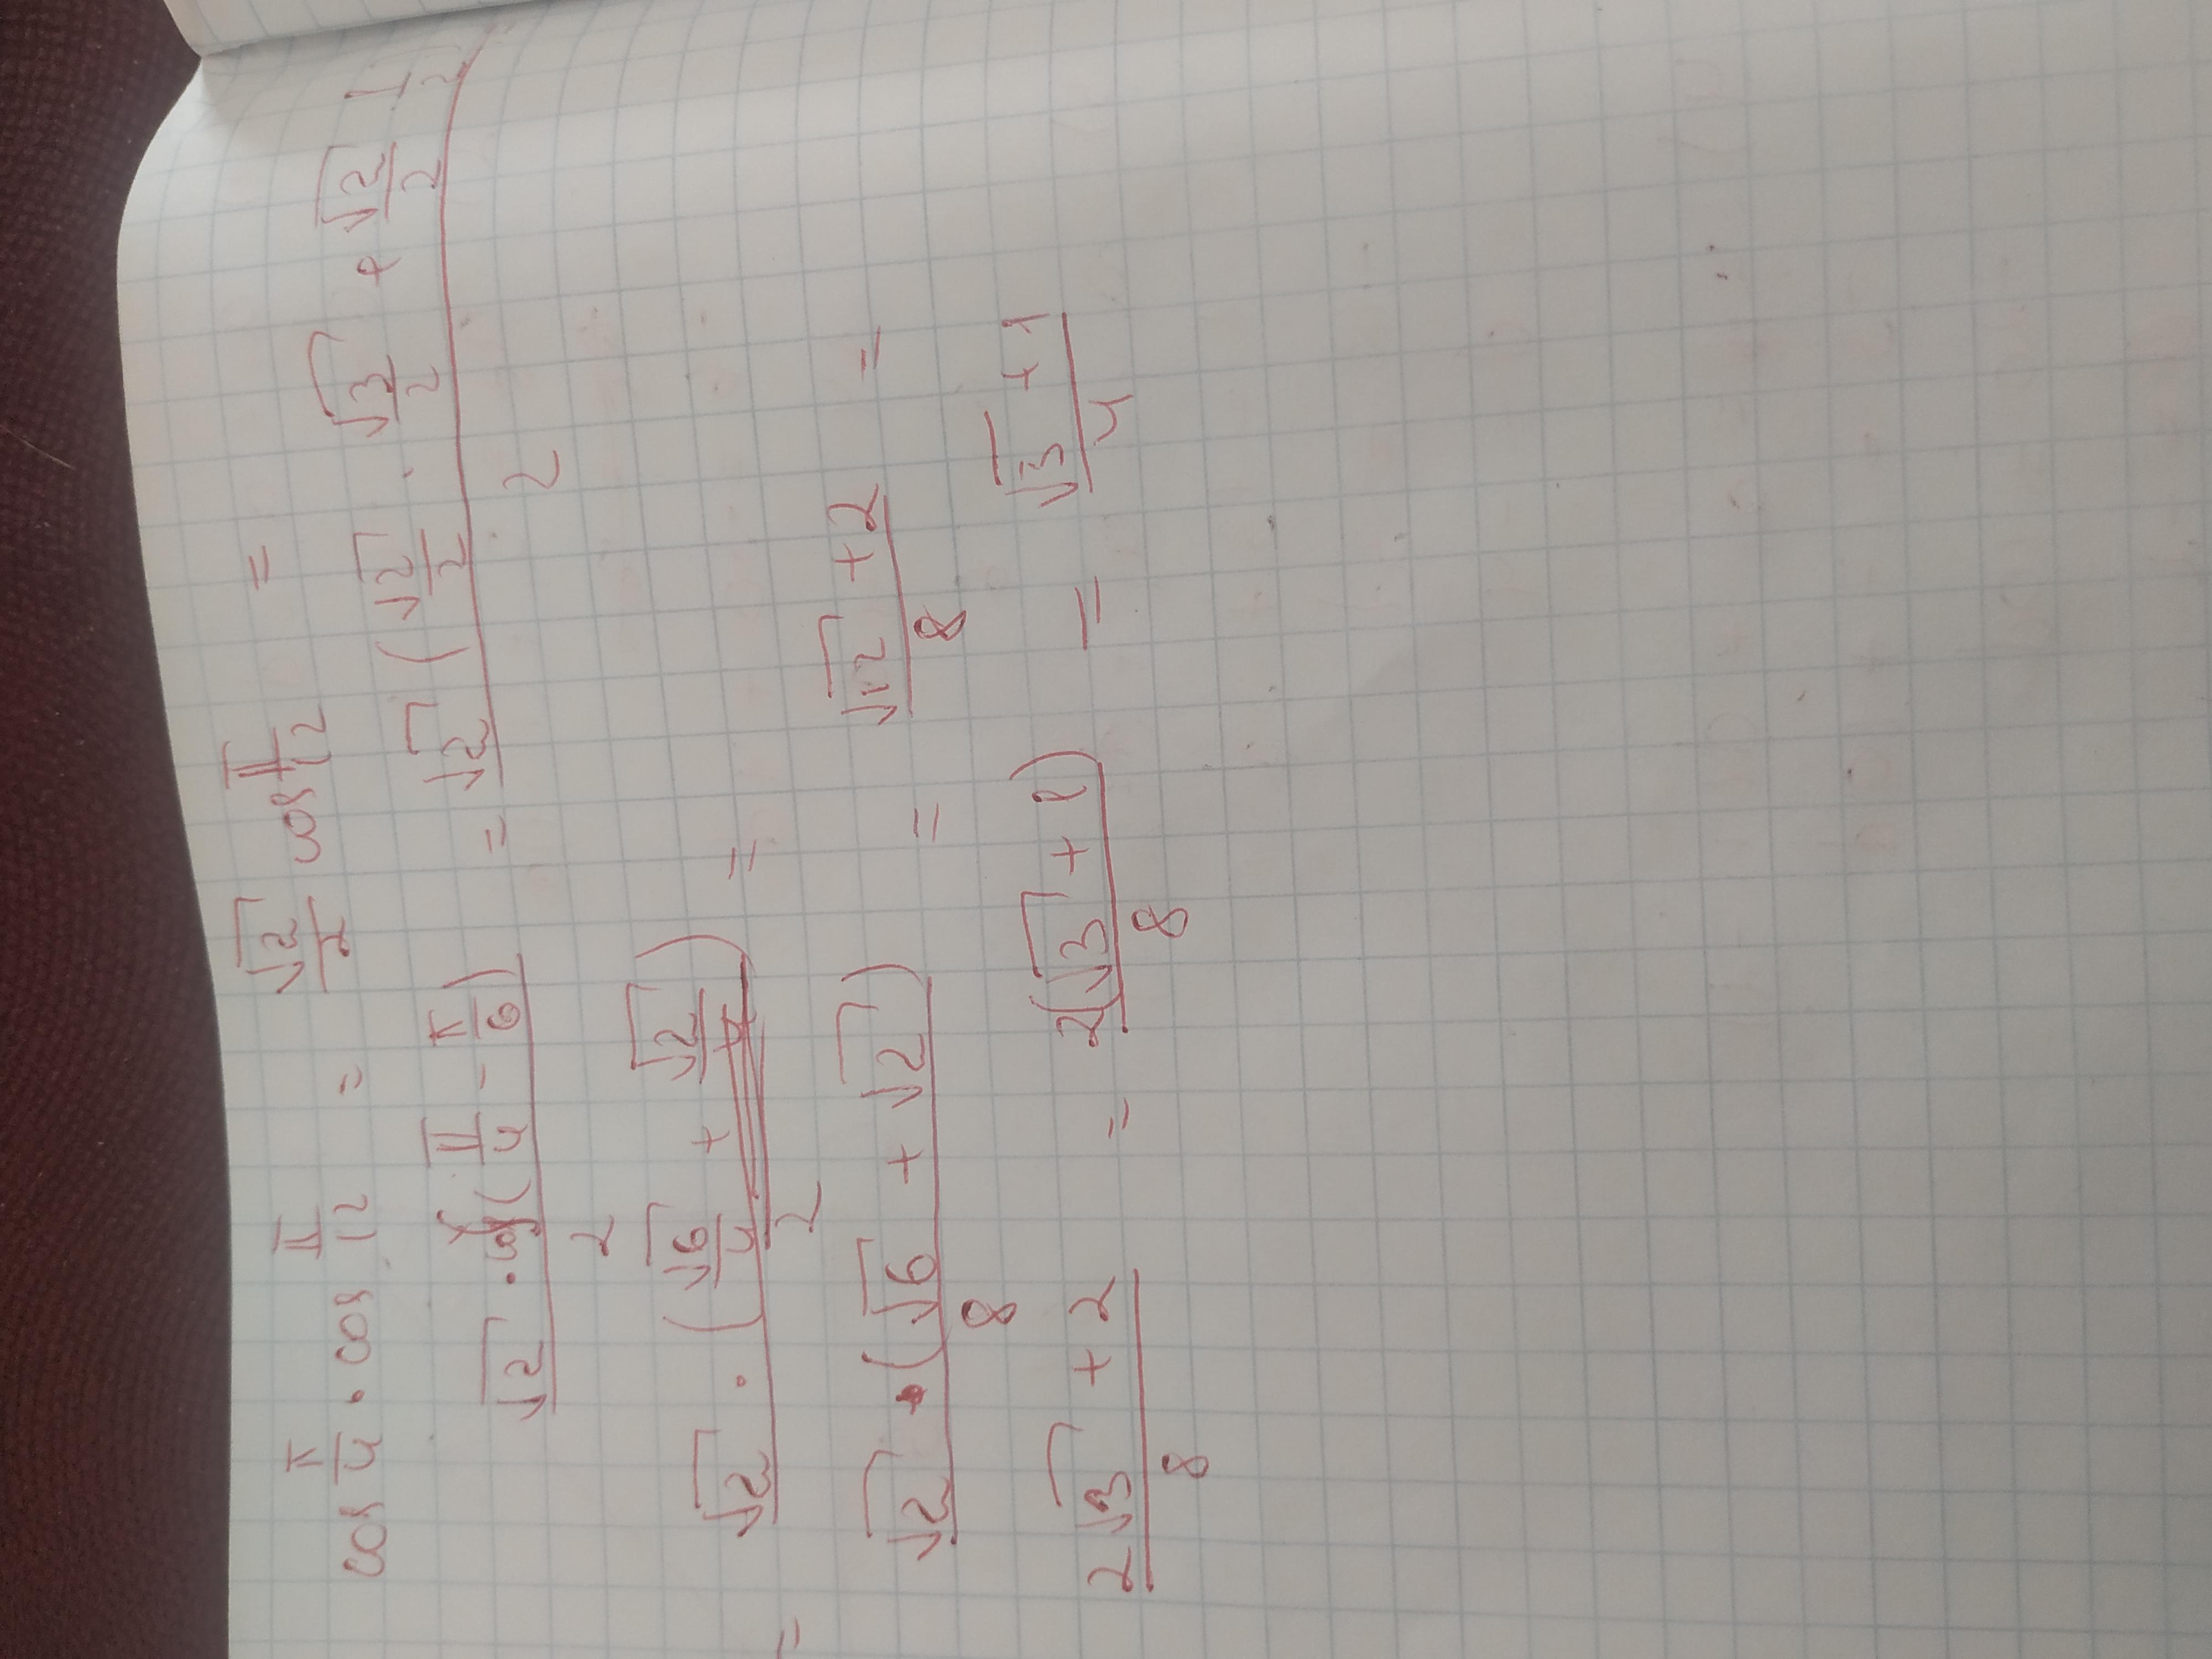 cos π/4 · cos π/12 = √2/2 cos π/12 =
√2 · cos(π/4 - π/6) / 2 = √2 (√2/2 · √3/2 + √2/2 · 1/2 / 2
= √2 · (√6/4 + √2/4) / 2 =
√2 · (√6 + √2) / 8 = √12 + 2 / 8 =
2√3 + 2 / 8 = 2(√3 + 1) / 8 = √3 + 1 / 4